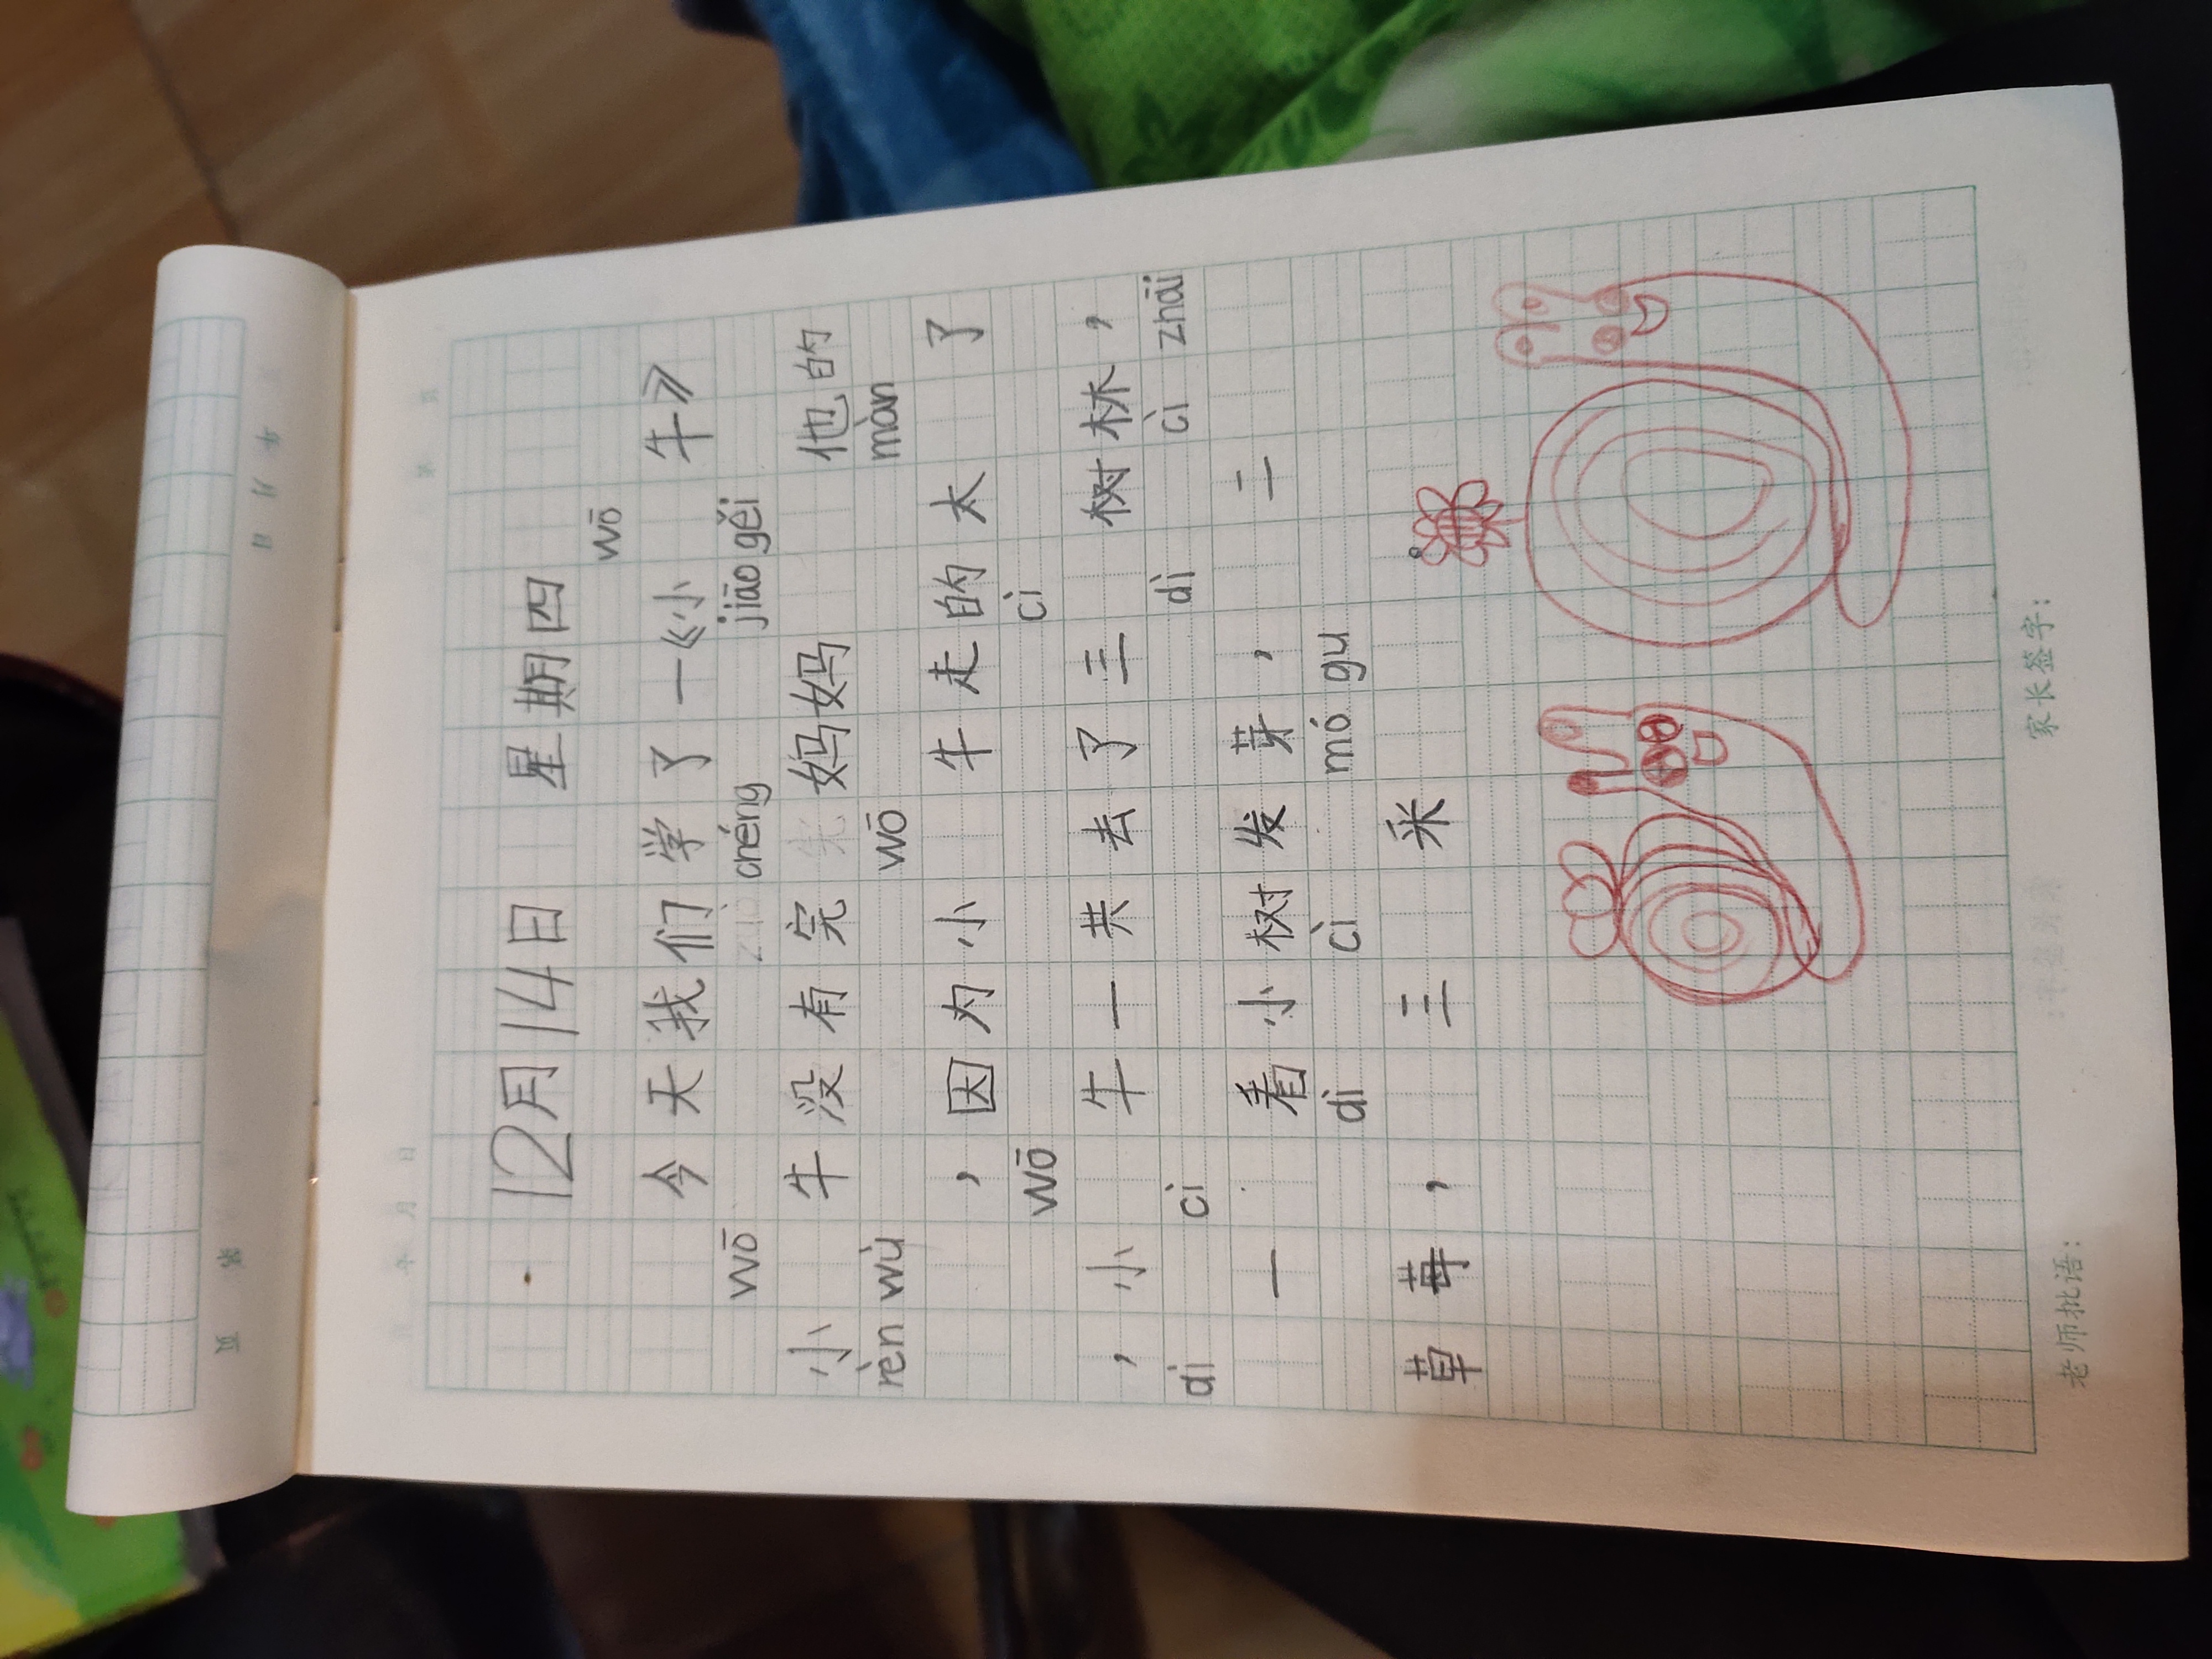 年 月 日 第 页
12月14日 星期四
wō
今天我们学了一《小 牛》
wō chéng jiāo gěi
小 牛没有完 妈妈 他的
rèn wù wō màn
，因为小 牛走的太 了
wō cì
，小 牛一共去了三 树林，
dì cì dì cì zhāi
一 看小树发芽，二
dì cì mó gu
草莓， 三 采
老师批语： 家长签字：